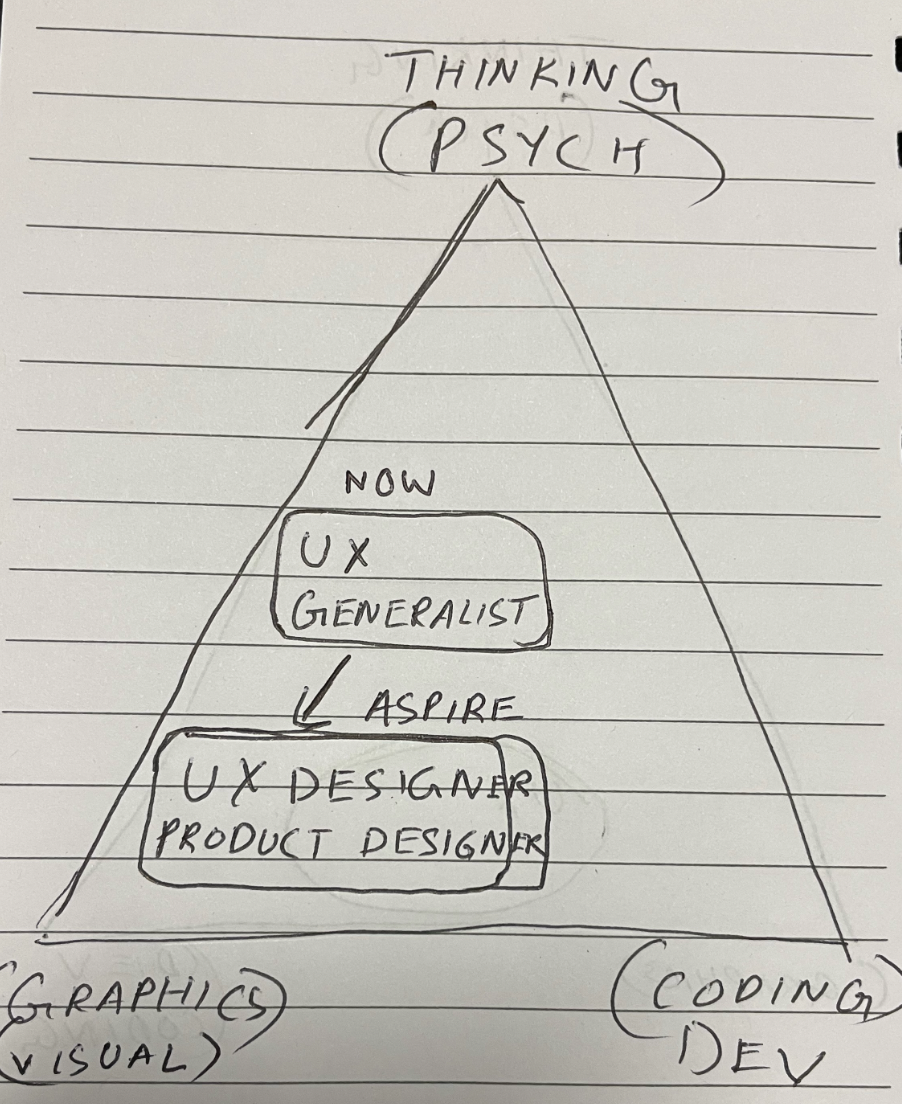 THINKING
(PSYCH)
NOW
UX
GENERALIST
ASPIRE
UX DESIGNER
PRODUCT DESIGNER
(GRAPHICS)
(VISUAL)
(CODING)
DEV